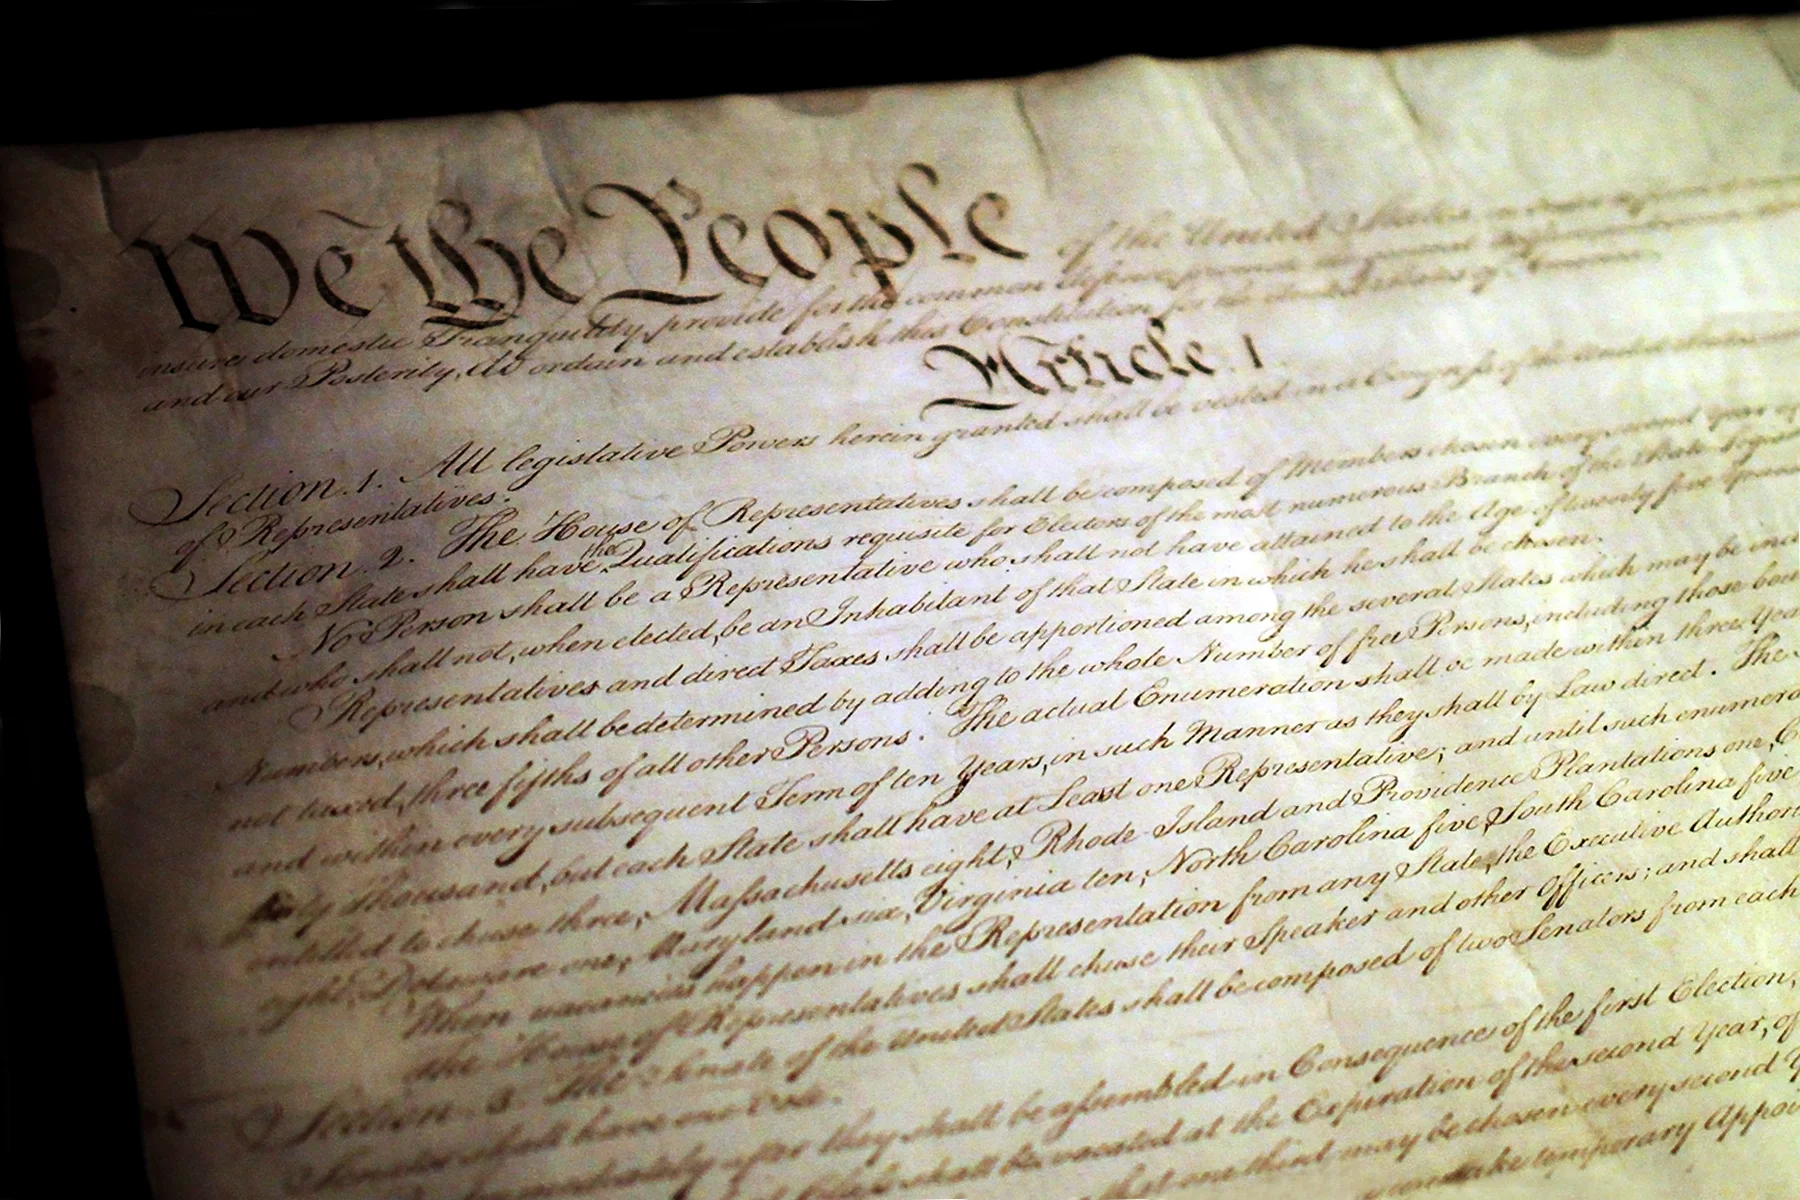 We the People of the United States
insure domestic Tranquility, provide for the common defence, promote the general
and our Posterity, do ordain and establish this Constitution for the United States of America.
Article. I
Section. 1. All legislative Powers herein granted shall be vested in a Congreſs of the United States
of Representatives.
Section. 2. The House of Representatives shall be composed of Members chosen every second Year
in each State shall have the Qualifications requisite for Electors of the most numerous Branch of the State
No Person shall be a Representative who shall not have attained to the Age of twenty five Years
and who shall not, when elected, be an Inhabitant of that State in which he shall be chosen.
Representatives and direct Taxes shall be apportioned among the several States which may be
Numbers, which shall be determined by adding to the whole Number of free Persons, including those
not taxed, three fifths of all other Persons. The actual Enumeration shall be made within three
and within every subsequent Term of ten Years, in such Manner as they shall by Law direct. The
thirty Thousand, but each State shall have at Least one Representative; and until such
entitled to chuse three, Maſsachusetts eight, Rhode-Island and Providence Plantations one,
eight, Delaware one, Maryland six, Virginia ten, North Carolina five, South Carolina five
When vacancies happen in the Representation from any State, the Executive
the House of Representatives shall chuse their Speaker and other Officers; and shall
Section. 3. The Senate of the United States shall be composed of two Senators from each
Senator shall have one Vote.
Immediately after they shall be aſsembled in Consequence of the first Election,
shall be vacated at the Expiration of the second Year, of
that one third may be chosen every second
make temporary